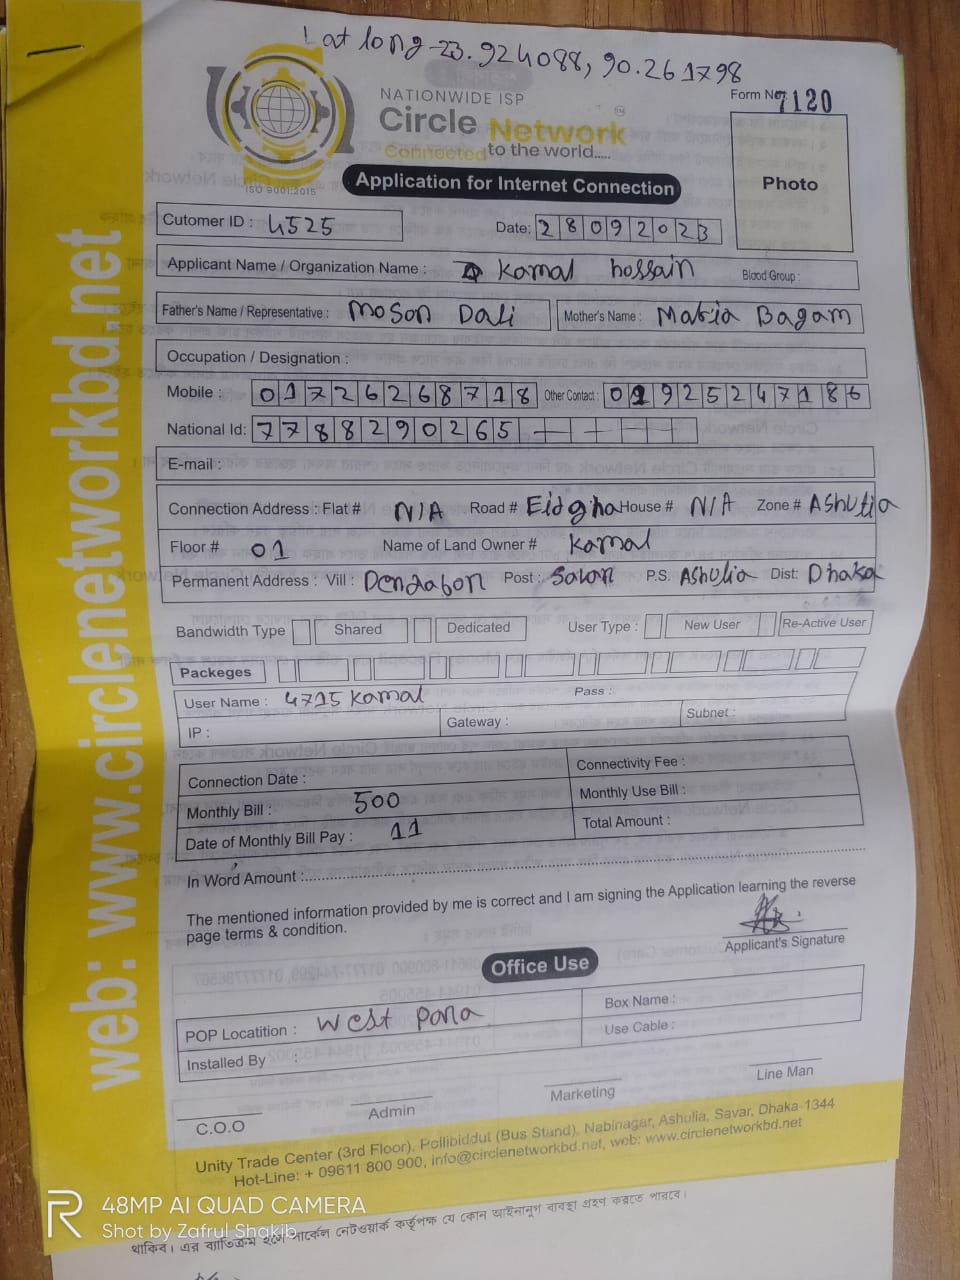 Lat long -23.924088, 90.261798
NATIONWIDE ISP
Circle Network
Connected to the world.....
ISO 9001:2015
Form No: 7120
Application for Internet Connection
Photo
Cutomer ID : 4525
Date: 28092023
Applicant Name / Organization Name : Kamal hossain Blood Group :
Father's Name / Representative : Moson Dali Mother's Name : Matia Bagam
Occupation / Designation :
Mobile : 01726268718 Other Contact : 01925247186
National Id: 7788290265
E-mail :
Connection Address : Flat # N/A Road # Eidgha House # N/A Zone # Ashulia
Floor # 01 Name of Land Owner # Kamal
Permanent Address : Vill : Dendabon Post : Savar P.S. Ashulia Dist: Dhaka
Bandwidth Type Shared Dedicated User Type : New User Re-Active User
Packeges
User Name : 4715 Kamal Pass :
IP : Gateway : Subnet :
Connection Date : Connectivity Fee :
Monthly Bill : 500 Monthly Use Bill :
Date of Monthly Bill Pay : 11 Total Amount :
In Word Amount :
The mentioned information provided by me is correct and I am signing the Application learning the reverse
page terms & condition.
Applicant's Signature
Office Use
POP Locatition : West para Box Name :
Installed By : Use Cable :
C.O.O Admin Marketing Line Man
Unity Trade Center (3rd Floor), Pollibiddut (Bus Stand), Nabinagar, Ashulia, Savar, Dhaka-1344
Hot-Line: + 09611 800 900, info@circlenetworkbd.net, web: www.circlenetworkbd.net
web: www.circlenetworkbd.net
থাকিব। এর ব্যতিক্রম হলে সার্কেল নেটওয়ার্ক কর্তৃপক্ষ যে কোন আইনানুগ ব্যবস্থা গ্রহণ করতে পারবে।
48MP AI QUAD CAMERA
Shot by Zafrul Shakib